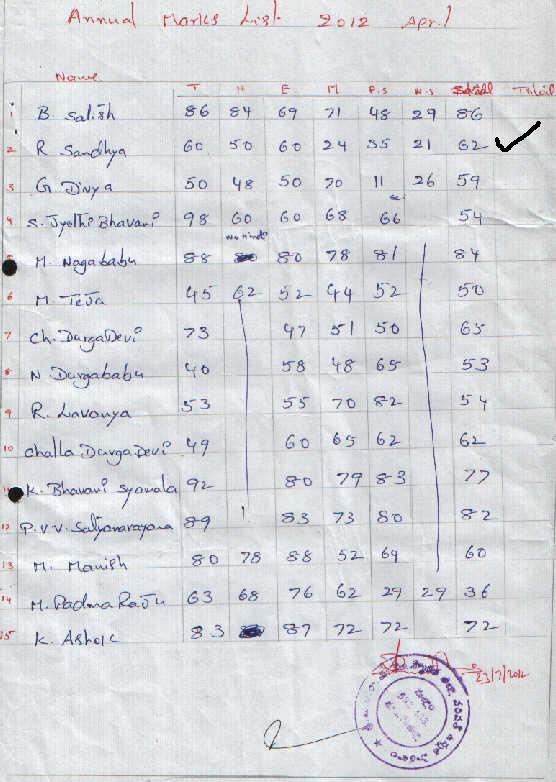 Annual Marks List 2012 April
Name T H E M P.S N.S Social Total
1 B Satish 86 84 69 71 48 29 86
2 R Sandhya 60 50 60 24 35 21 62
3 G Divya 50 48 50 70 11 26 59
4 S. Jyothi Bhavani 98 60 60 68 66 54
No Hindi
5 M. Nagababu 88 80 78 81 84
6 M. Teja 45 62 52 44 52 50
7 Ch. Durga Devi 73 47 51 50 65
8 N Durgababu 40 58 48 65 53
9 R. Lavanya 53 55 70 82 54
10 Challa Durga Devi 49 60 65 62 62
11 K. Bhavani Syamala 92 80 79 83 77
12 P.V.V. Satyanarayana 89 83 73 80 82
13 M. Manish 80 78 88 52 69 60
14 M. Padma Raju 63 68 76 62 29 29 36
15 K. Ashok 83 87 72 72 72
23/7/2012